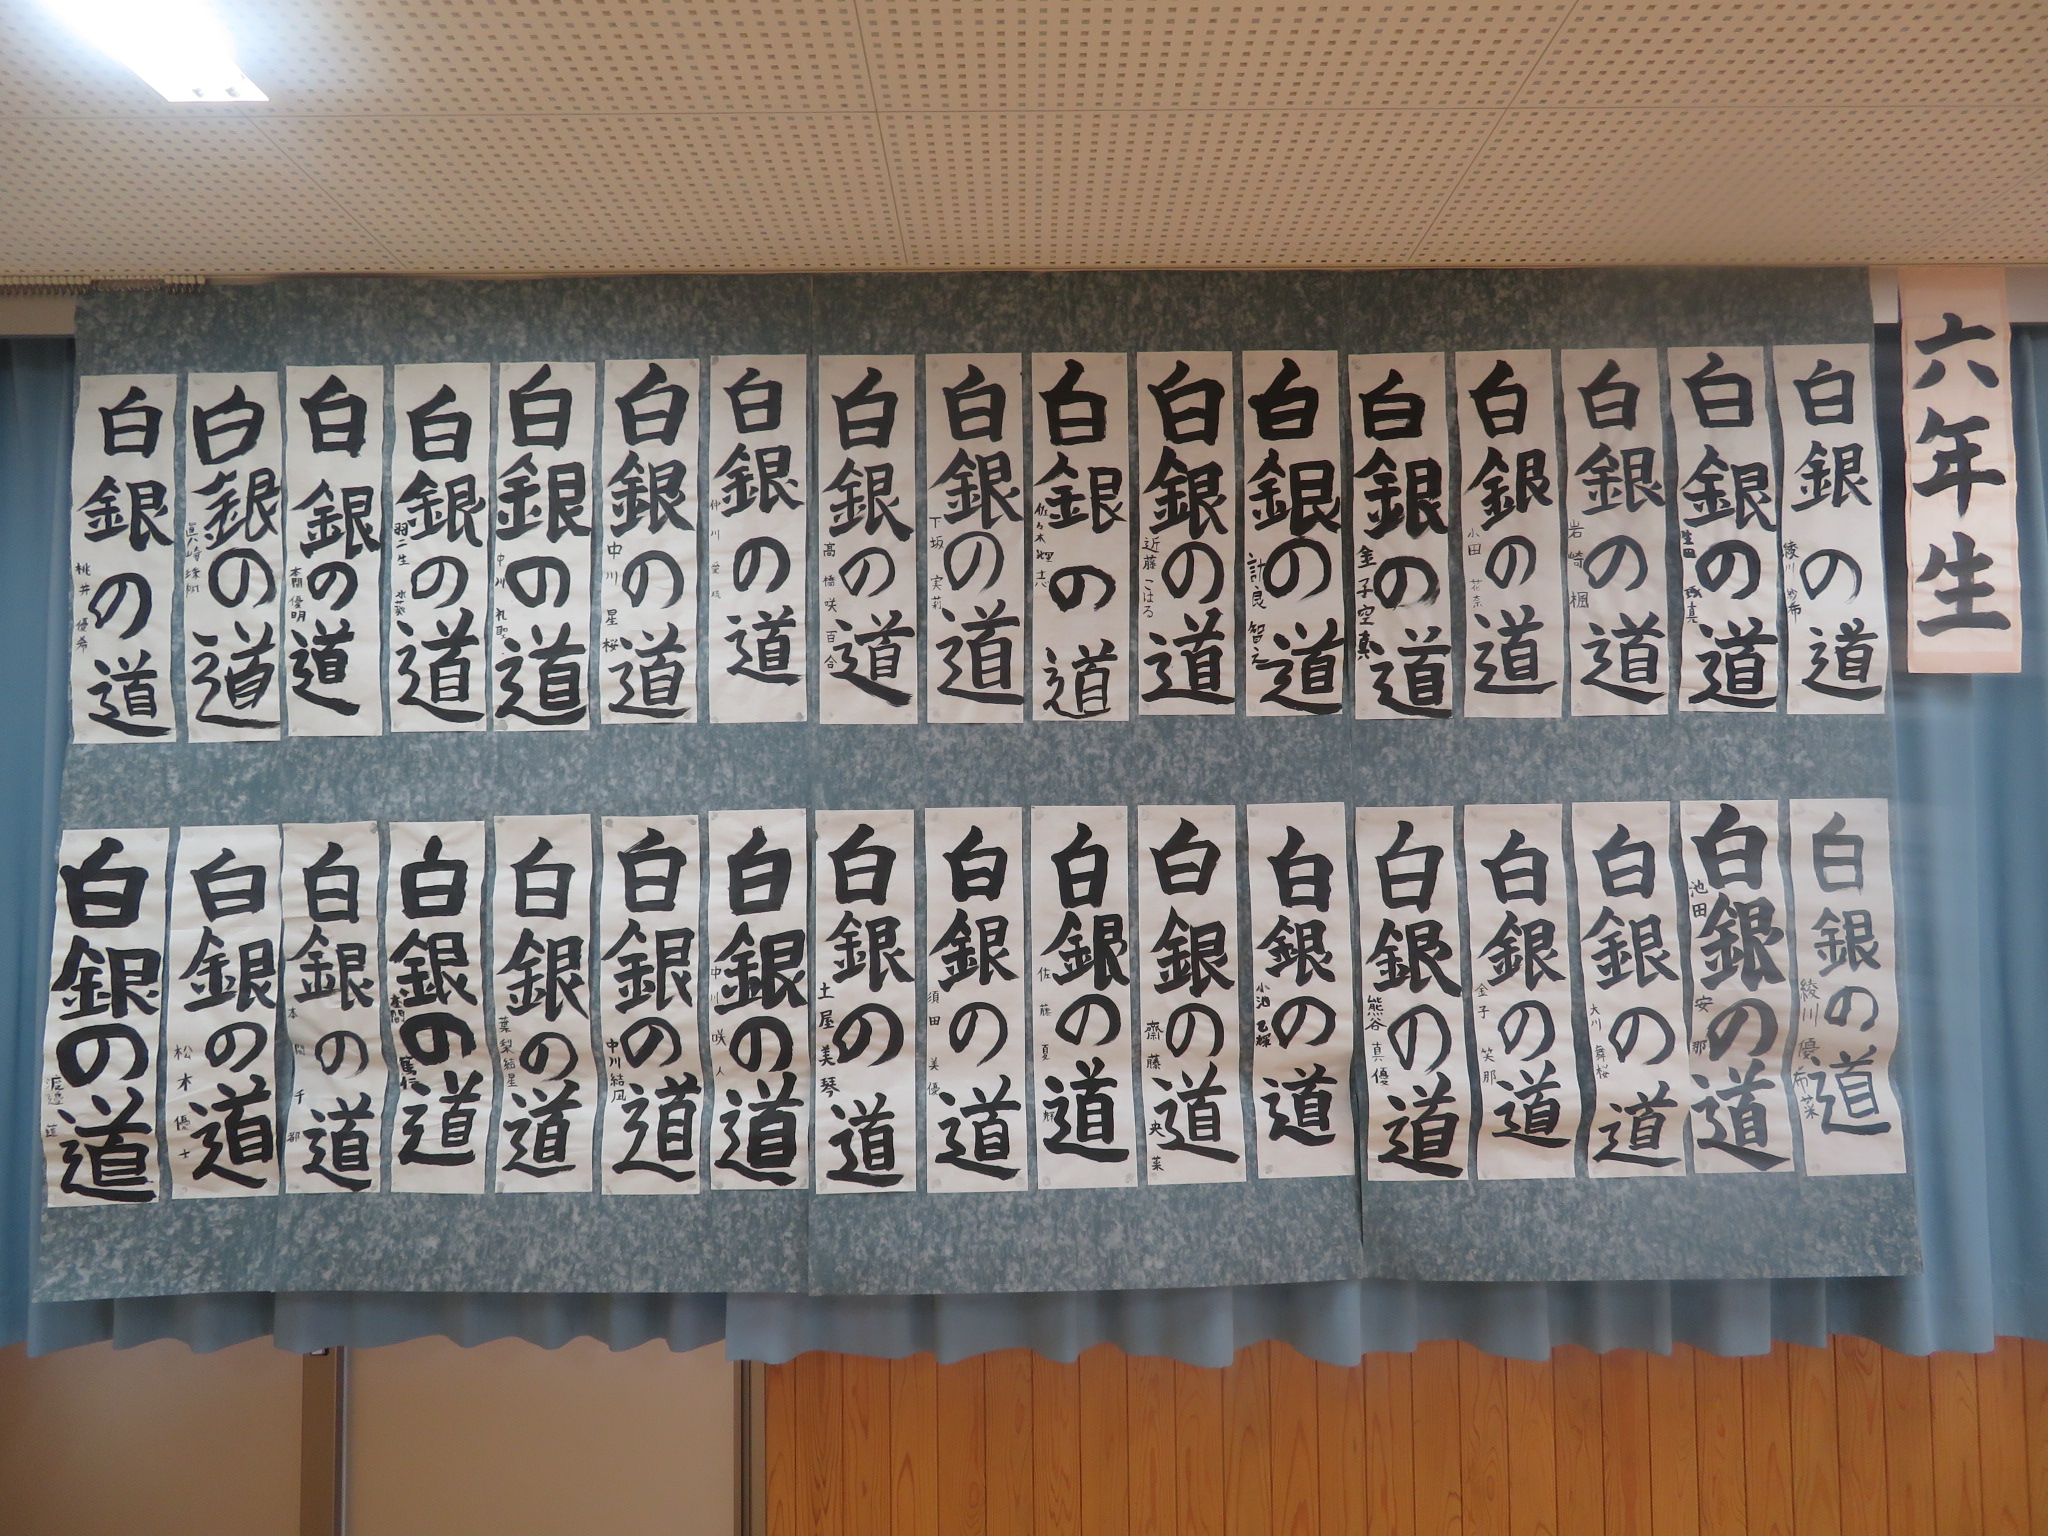 六年生
白銀の道
綾川 紗希
白銀の道
生田
白銀の道
岩崎 楓
白銀の道
小田 花奈
白銀の道
金子空真
白銀の道
計良 智之
白銀の道
近藤 こはる
白銀の道
佐々木
白銀の道
下坂 実莉
白銀の道
高橋 咲百合
白銀の道
仲川
白銀の道
中川 星桜
白銀の道
中川 礼聖
白銀の道
羽二生 氷葵
白銀の道
本間 優明
白銀の道
白銀の道
桃井 優希
白銀の道
綾川 優希菜
白銀の道
池田 安那
白銀の道
大川 舞桜
白銀の道
金子 笑那
白銀の道
熊谷 真優
白銀の道
小池
白銀の道
齋藤 央菜
白銀の道
佐藤 夏
白銀の道
須田 美優
白銀の道
土屋 美琴
白銀の道
中川 咲人
白銀の道
中川 結凪
白銀の道
葉梨 結星
白銀の道
本間 篤仁
白銀の道
本間 千都
白銀の道
松木 優士
白銀の道
渡邉 蓮